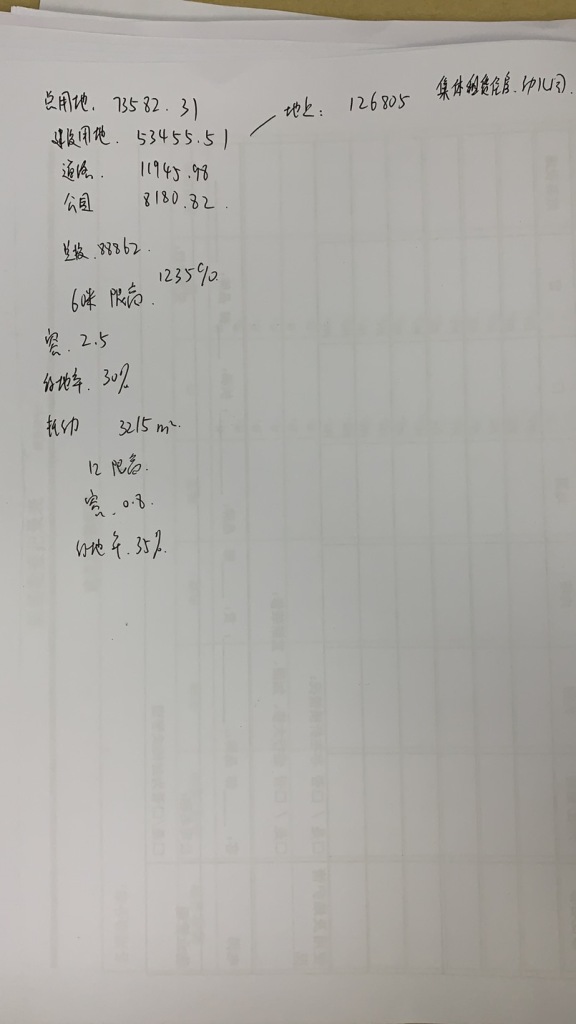 总用地. 73582.31
建设用地. 53455.51
地上: 126805
集体租赁住房.
道路. 11945.98
公园 8180.82.
88862.
1235%
60米 限高.
容. 2.5
绿地率. 30%
托幼 3215m².
12 限高.
容. 0.8.
绿地率. 35%.